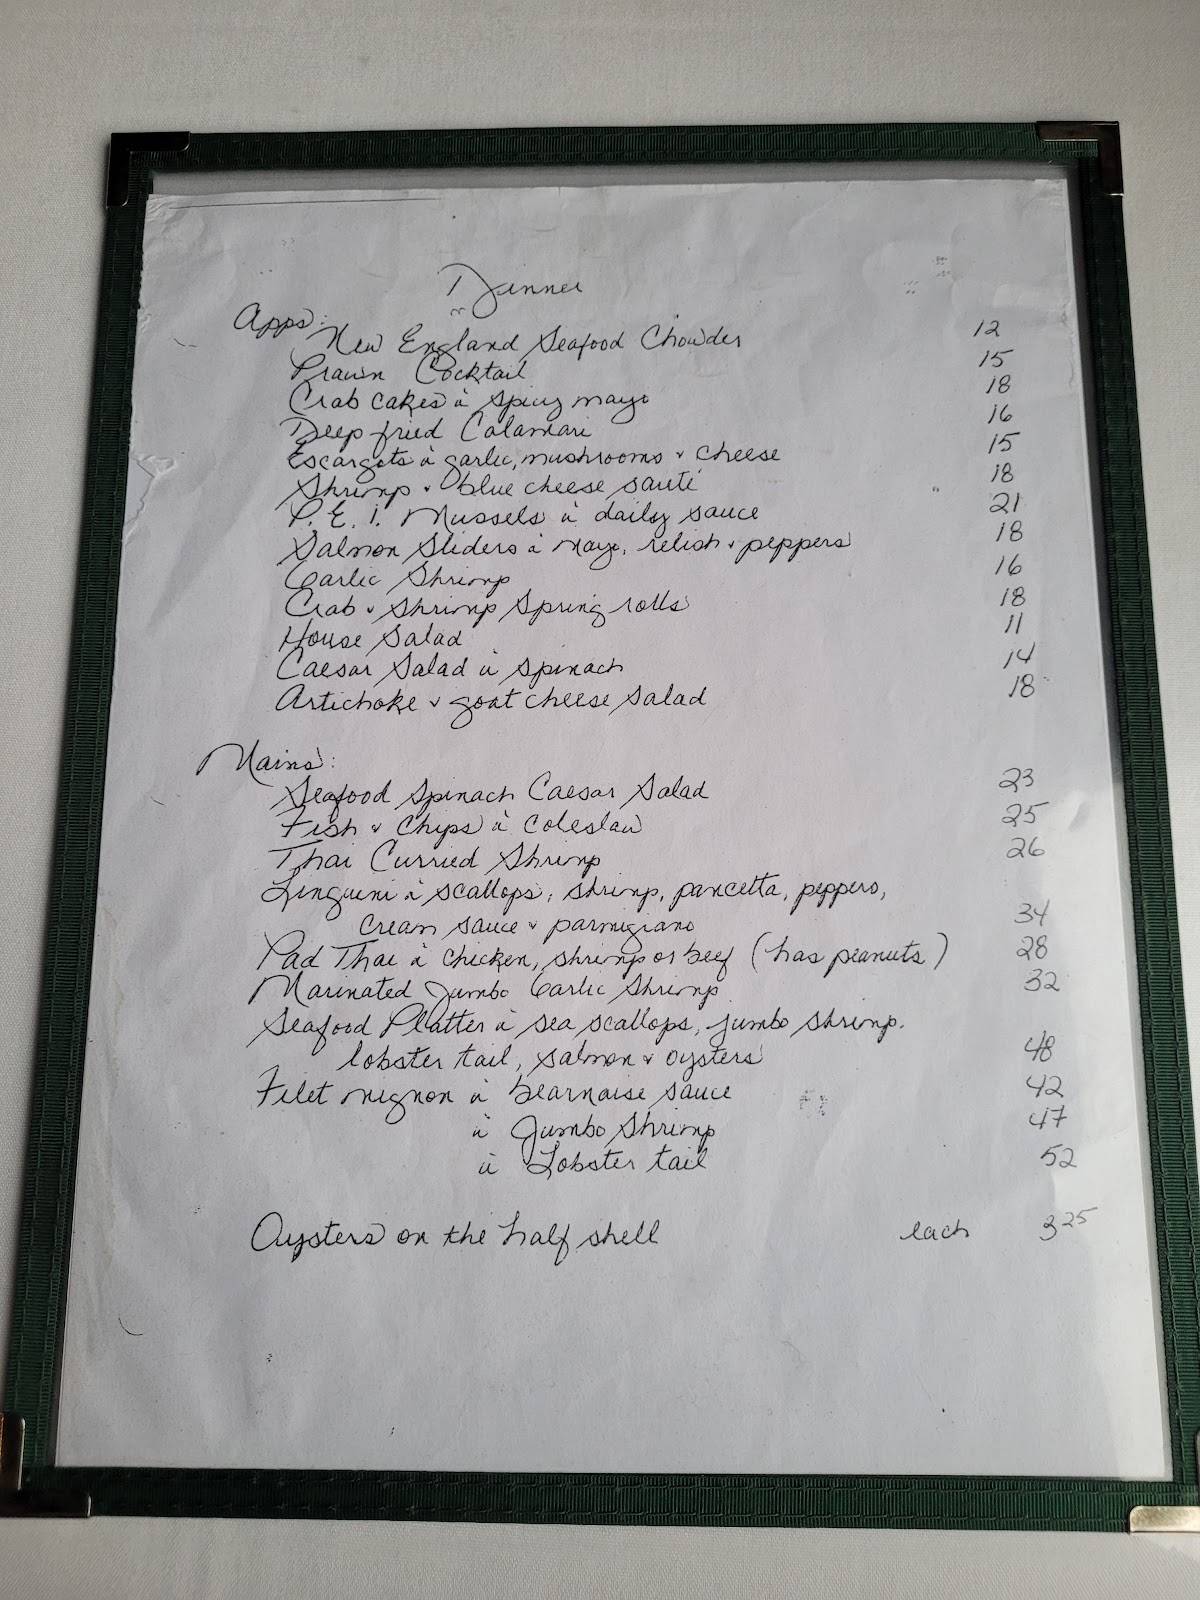 Dinner
Apps:
New England Seafood Chowder 12
Prawn Cocktail 15
Crab cakes à spicy mayo 18
Deep fried Calamari 16
Escargots à garlic, mushrooms & cheese 15
Shrimp & blue cheese sauté 18
P.E.I. Mussels à daily sauce 21
Salmon Sliders à mayo, relish & peppers 18
Garlic Shrimp 16
Crab & Shrimp Spring rolls 18
House Salad 11
Caesar Salad à spinach 14
Artichoke & goat cheese Salad 18
Mains:
Seafood Spinach Caesar Salad 23
Fish & Chips à Coleslaw 25
Thai Curried Shrimp 26
Linguini à scallops, shrimp, pancetta, peppers,
cream sauce & parmigiano 34
Pad Thai à chicken, shrimp or beef (has peanuts) 28
Marinated Jumbo Garlic Shrimp 32
Seafood Platter à sea scallops, jumbo shrimp,
lobster tail, salmon & oysters 48
Filet mignon à bearnaise sauce 42
à Jumbo Shrimp 47
à Lobster tail 52
Oysters on the half shell each 3 25